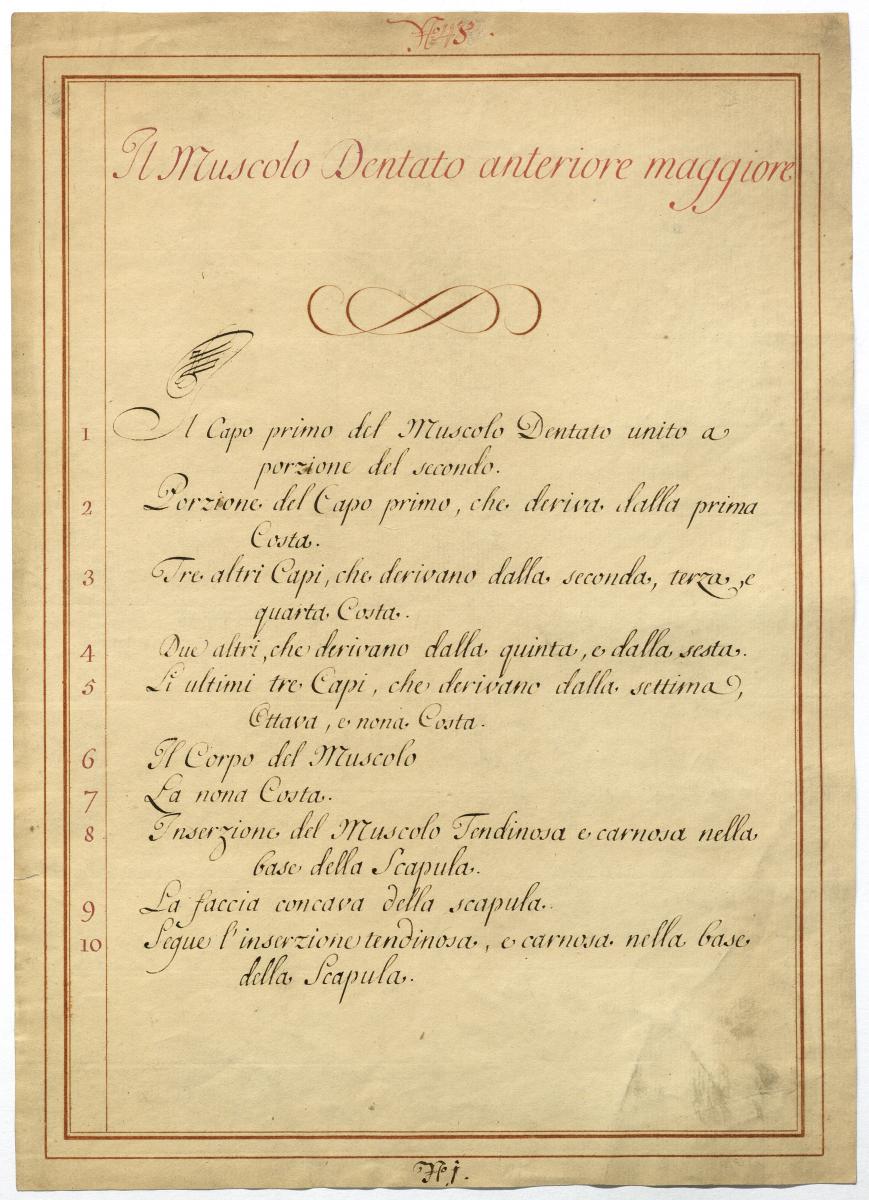 Il Muscolo Dentato anteriore maggiore
1 Il Capo primo del Muscolo Dentato unito a
porzione del secondo.
2 Porzione del Capo primo, che deriva dalla prima
Costa.
3 Tre altri Capi, che derivano dalla seconda, terza, e
quarta Costa.
4 Due altri, che derivano dalla quinta, e dalla sesta.
5 Li ultimi tre Capi, che derivano dalla settima,
Ottava, e nona Costa.
6 Il Corpo del Muscolo
7 La nona Costa.
8 Inserzione del Muscolo Tendinosa e carnosa nella
base della Scapula.
9 La faccia concava della scapula.
10 Segue l'inserzione tendinosa, e carnosa nella base
della Scapula.
No. 1.